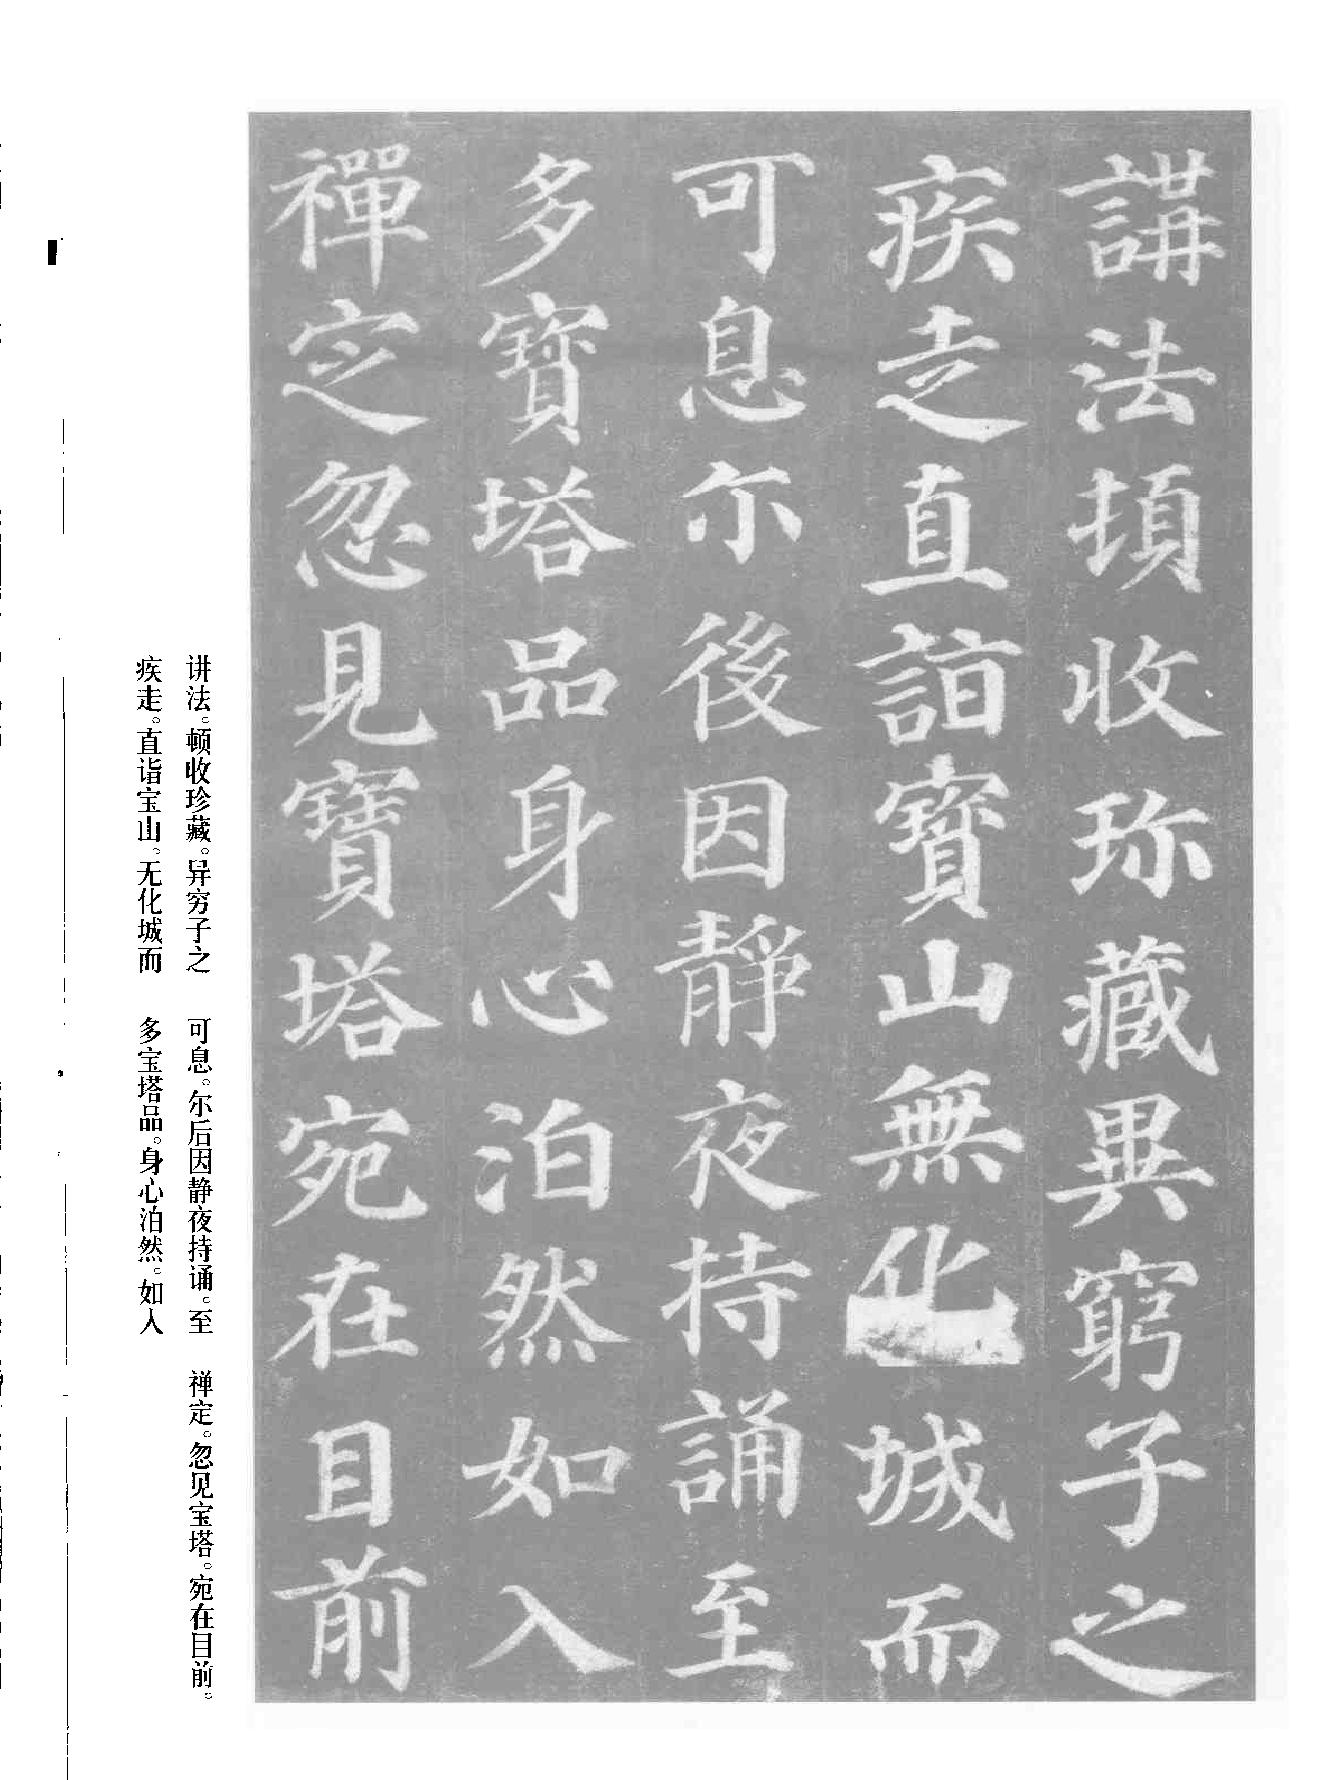 講法頓收珎藏異窮子之
疾走直詣寶山無化城而
可息尒後因靜夜持誦至
多寶塔品身心泊然如入
禪定忽見寶塔宛在目前
讲法。顿收珍藏。异穷子之
疾走。直诣宝山。无化城而
可息。尔后因静夜持诵。至
多宝塔品。身心泊然。如入
禅定。忽见宝塔。宛在目前。